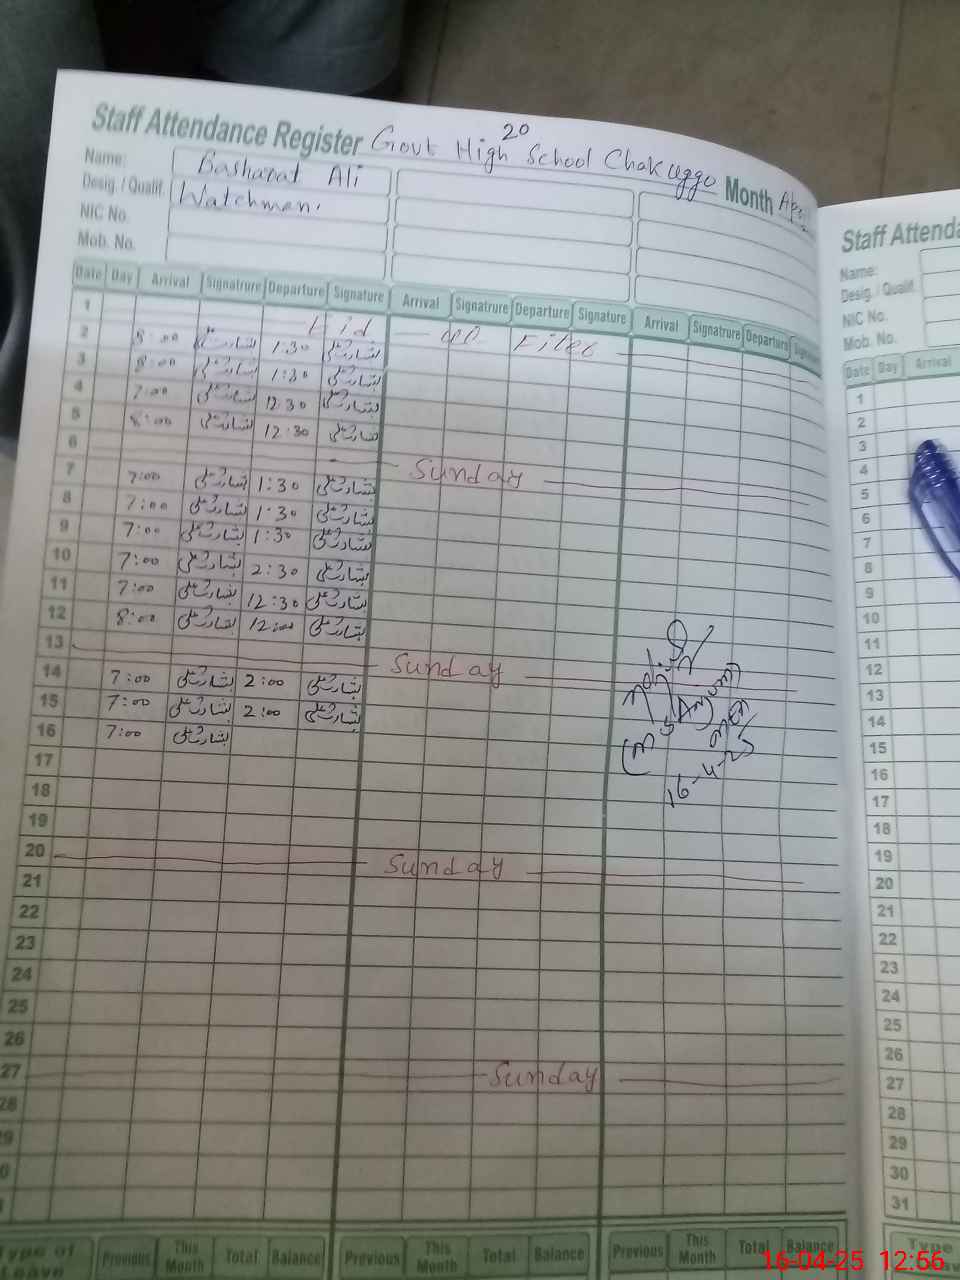 20
Staff Attendance Register Govt High School Chak uggo Month April
Name: Basharat Ali
Desig. / Qualif. Watchman.
NIC No.
Mob. No.
Date Day Arrival Signatrure Departure Signature Arrival Signatrure Departure Signature Arrival Signatrure Departure
1 Eid ul Fiter
2 8:00 بشارت علی 1:30 بشارت علی
3 8:00 بشارت علی 1:30 بشارت علی
4 7:00 بشارت علی 12:30 بشارت علی
5 8:00 بشارت علی 12:30 بشارت علی
6 Sunday
7 7:00 بشارت علی 1:30 بشارت علی
8 7:00 بشارت علی 1:30 بشارت علی
9 7:00 بشارت علی 1:30 بشارت علی
10 7:00 بشارت علی 2:30 بشارت علی
11 7:00 بشارت علی 12:30 بشارت علی
12 8:00 بشارت علی 12:00 بشارت علی
13 Sunday
14 7:00 بشارت علی 2:00 بشارت علی
15 7:00 بشارت علی 2:00 بشارت علی
16 7:00 بشارت علی
16-4-25
17
18
19
20 Sunday
21
22
23
24
25
26
27 Sunday
28
Type of Leave Previous This Month Total Balance Previous This Month Total Balance Previous This Month Total Balance
Staff Attenda
Name:
Desig. / Qualif.
NIC No.
Mob. No.
Date Day Arrival
1
2
3
4
5
6
7
8
9
10
11
12
13
14
15
16
17
18
19
20
21
22
23
24
25
26
27
28
29
30
31
Type
16-04-25 12:56